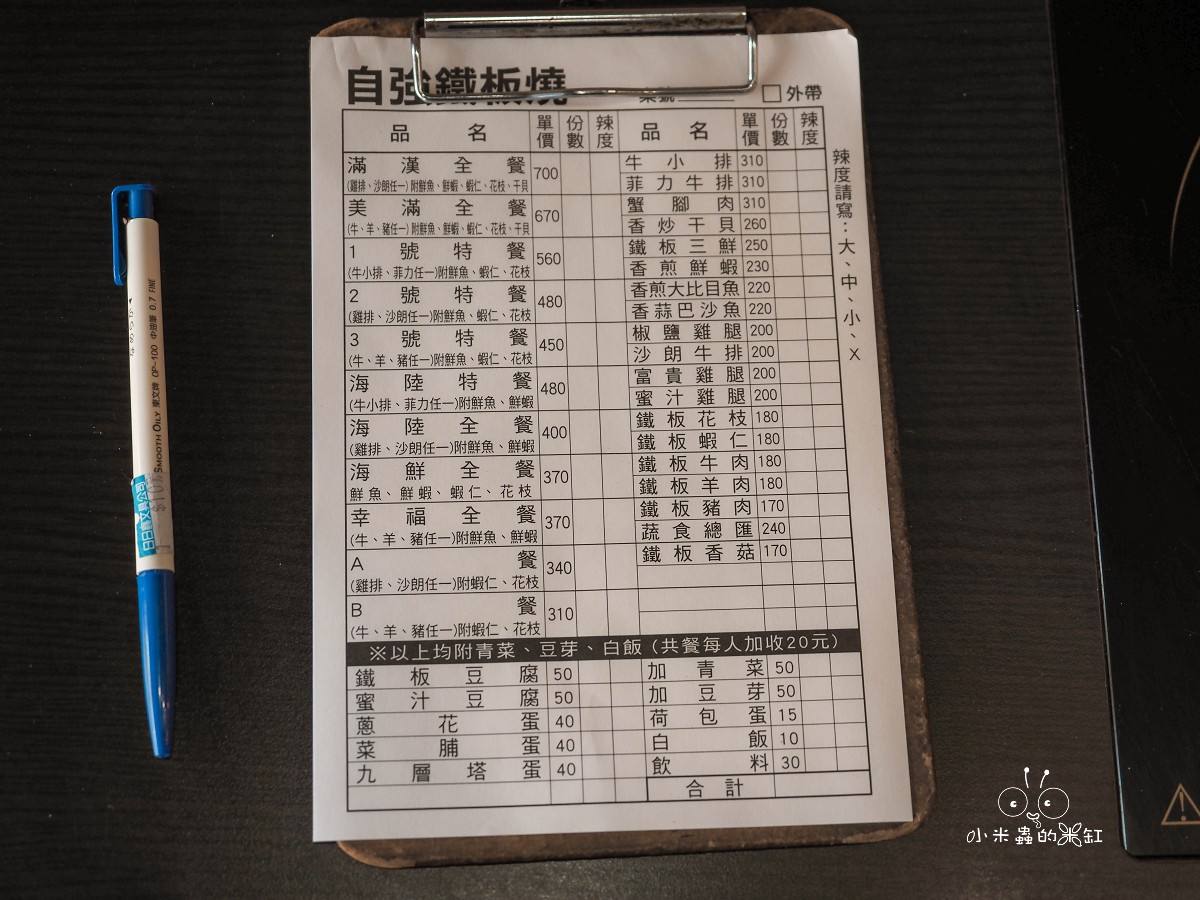 自強鐵板燒
桌號
外帶
品名 單價 份數 辣度 品名 單價 份數 辣度
滿漢全餐 700
(雞排、沙朗任一)附鮮魚、鮮蝦、蝦仁、花枝、干貝
美滿全餐 670
(牛、羊、豬任一)附鮮魚、鮮蝦、蝦仁、花枝、干貝
1號特餐 560
(牛小排、菲力任一)附鮮魚、蝦仁、花枝
2號特餐 480
(雞排、沙朗任一)附鮮魚、蝦仁、花枝
3號特餐 450
(牛、羊、豬任一)附鮮魚、蝦仁、花枝
海陸特餐 480
(牛小排、菲力任一)附鮮魚、鮮蝦
海陸全餐 400
(雞排、沙朗任一)附鮮魚、鮮蝦
海鮮全餐 370
鮮魚、鮮蝦、蝦仁、花枝
幸福全餐 370
(牛、羊、豬任一)附鮮魚、鮮蝦
A餐 340
(雞排、沙朗任一)附蝦仁、花枝
B餐 310
(牛、羊、豬任一)附蝦仁、花枝
牛小排 310
菲力牛排 310
蟹腳肉 310
香炒干貝 260
鐵板三鮮 250
香煎鮮蝦 230
香煎大比目魚 220
香蒜巴沙魚 220
椒鹽雞腿 200
沙朗牛排 200
富貴雞腿 200
蜜汁雞腿 200
鐵板花枝 180
鐵板蝦仁 180
鐵板牛肉 180
鐵板羊肉 180
鐵板豬肉 170
蔬食總匯 240
鐵板香菇 170
辣度請寫：大、中、小、X
※以上均附青菜、豆芽、白飯（共餐每人加收20元）
鐵板豆腐 50
蜜汁豆腐 50
蔥花蛋 40
菜脯蛋 40
九層塔蛋 40
加青菜 50
加豆芽 50
荷包蛋 15
白飯 10
飲料 30
合計
SMOOTH OILY 東文牌 OP-100 中油筆 0.7 FINE
小米蟲的米缸